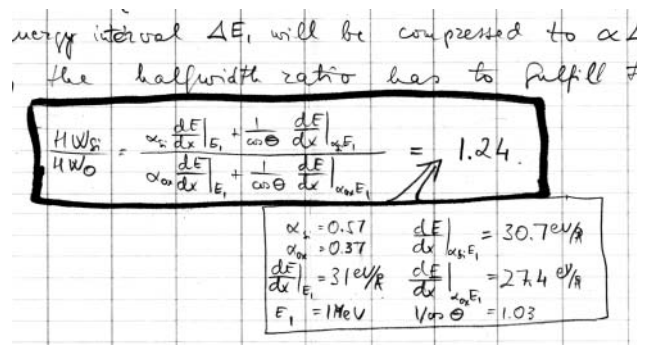 nergy interval ΔE, will be compressed to α
the halfwidth ratio has to fulfill
HWsi / HWo = (αsi dE/dx|E₁ + 1/cosΘ dE/dx|αsiE₁) / (αox dE/dx|E₁ + 1/cosΘ dE/dx|αoxE₁) = 1.24.
αsi = 0.57 dE/dx|αsiE₁ = 30.7 eV/Å
αox = 0.37
dE/dx|E₁ = 31 eV/Å dE/dx|αoxE₁ = 27.4 eV/Å
E₁ = 1MeV 1/cosΘ = 1.03